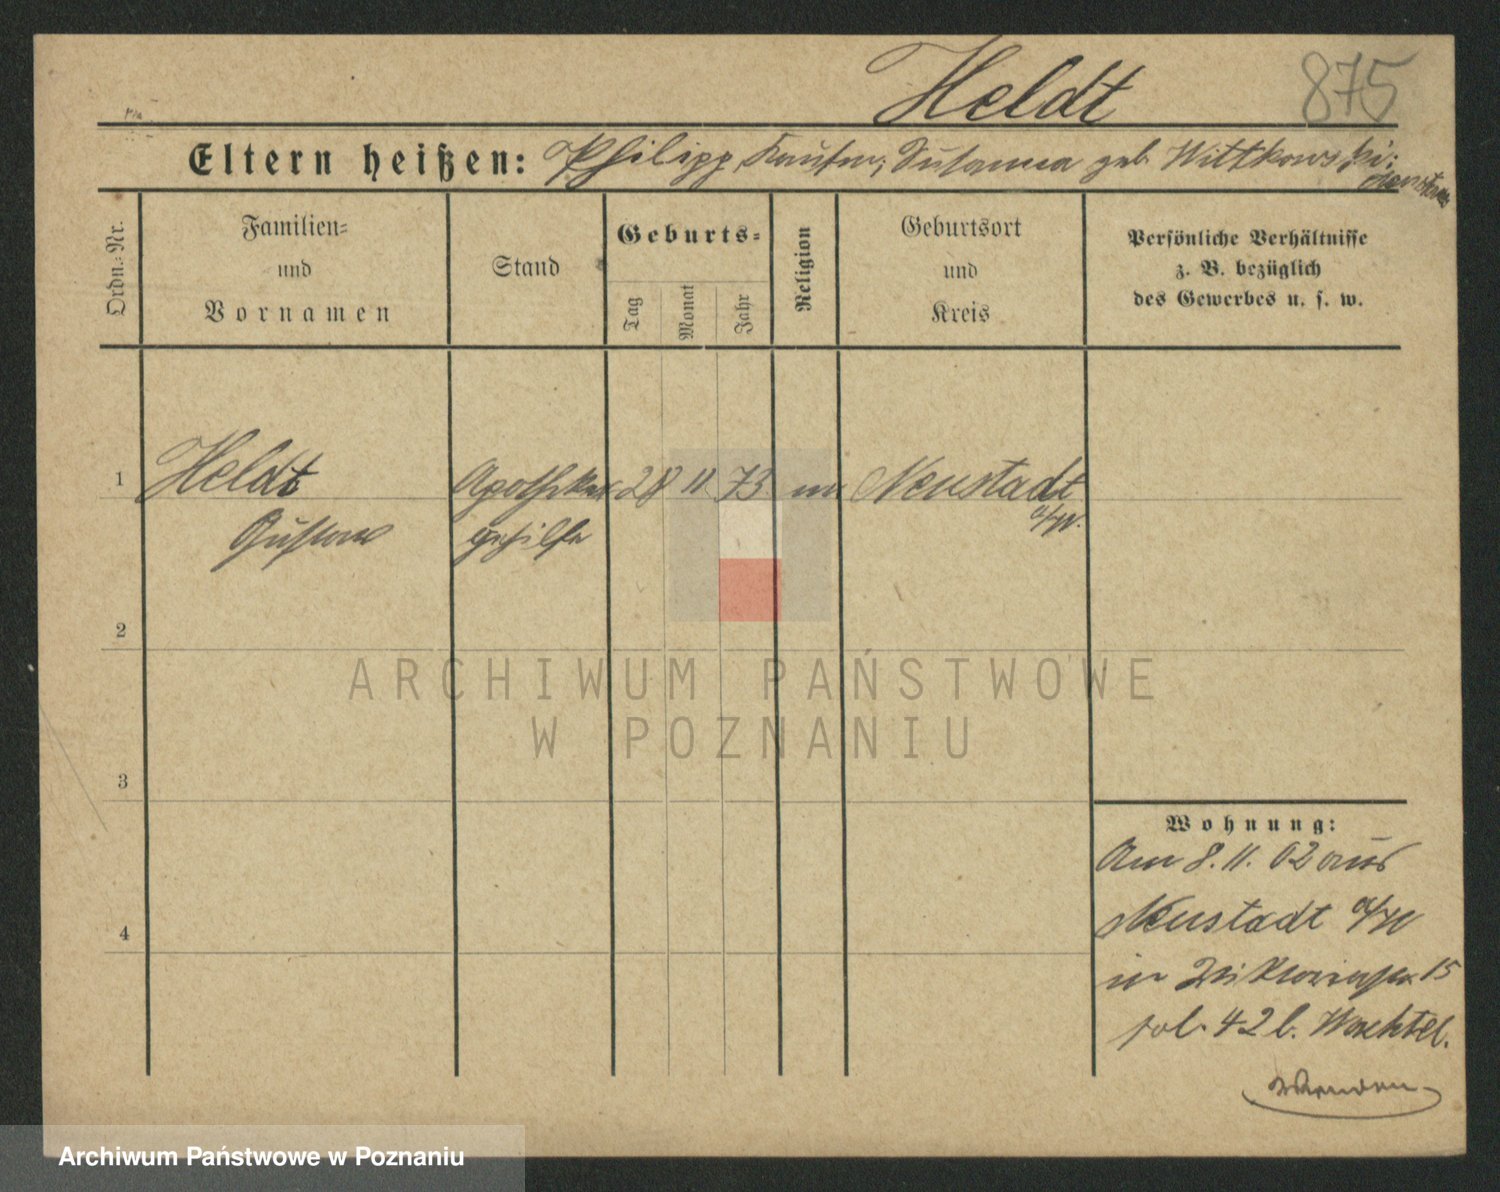 Heldt 875
Eltern heißen: Philipp, Kaufm, Susanna geb. Wittkowski;
Ordn.-Nr.
Familien-
und
Vornamen
Stand
Geburts-
Tag
Monat
Jahr
Religion
Geburtsort
und
Kreis
Persönliche Verhältnisse
z. B. bezüglich
des Gewerbes u. s. w.
1 Heldt Apotheker 28 11 73 Neustadt
a/W.
Gustav gehilfe
2
3
4
Wohnung:
Am 8. 11. 02 aus
Neustadt a/W
in Viktoriastr. 15
b. Wachtel.
ARCHIWUM PAŃSTWOWE
W POZNANIU
Archiwum Państwowe w Poznaniu